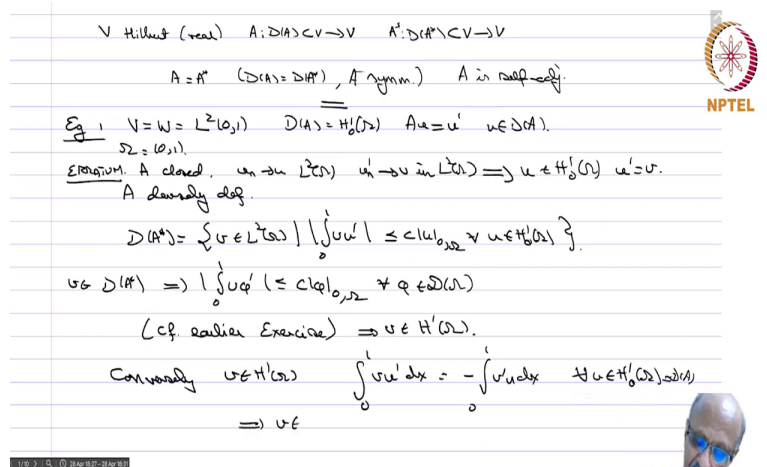 V Hilbert (real) A : D(A) ⊂ V → V A* : D(A*) ⊂ V → V
A = A* (D(A) = D(A*), A symm.) A is self-adj.
NPTEL
Eg 1 V = W = L²(0,1) D(A) = H₀¹(Ω) Au = u' u ∈ D(A).
Ω = (0,1).
ERRATUM. A closed. uₙ → u L²(Ω) uₙ' → v in L²(Ω) ⟹ u ∈ H₀¹(Ω) u' = v.
A densely def.
D(A*) = { v ∈ L²(Ω) | | ∫₀¹ v u' | ≤ C|u|₀,Ω ∀ u ∈ H₀¹(Ω) }.
v ∈ D(A*) ⟹ | ∫₀¹ v φ' | ≤ C|φ|₀,Ω ∀ φ ∈ D(Ω)
(cf. earlier Exercise) ⟹ v ∈ H¹(Ω).
Conversely v ∈ H¹(Ω) ∫₀¹ v u' dx = - ∫₀¹ v' u dx ∀ u ∈ H₀¹(Ω) = D(A)
⟹ v ∈
1/10 28 Apr 18:27 - 28 Apr 18:31